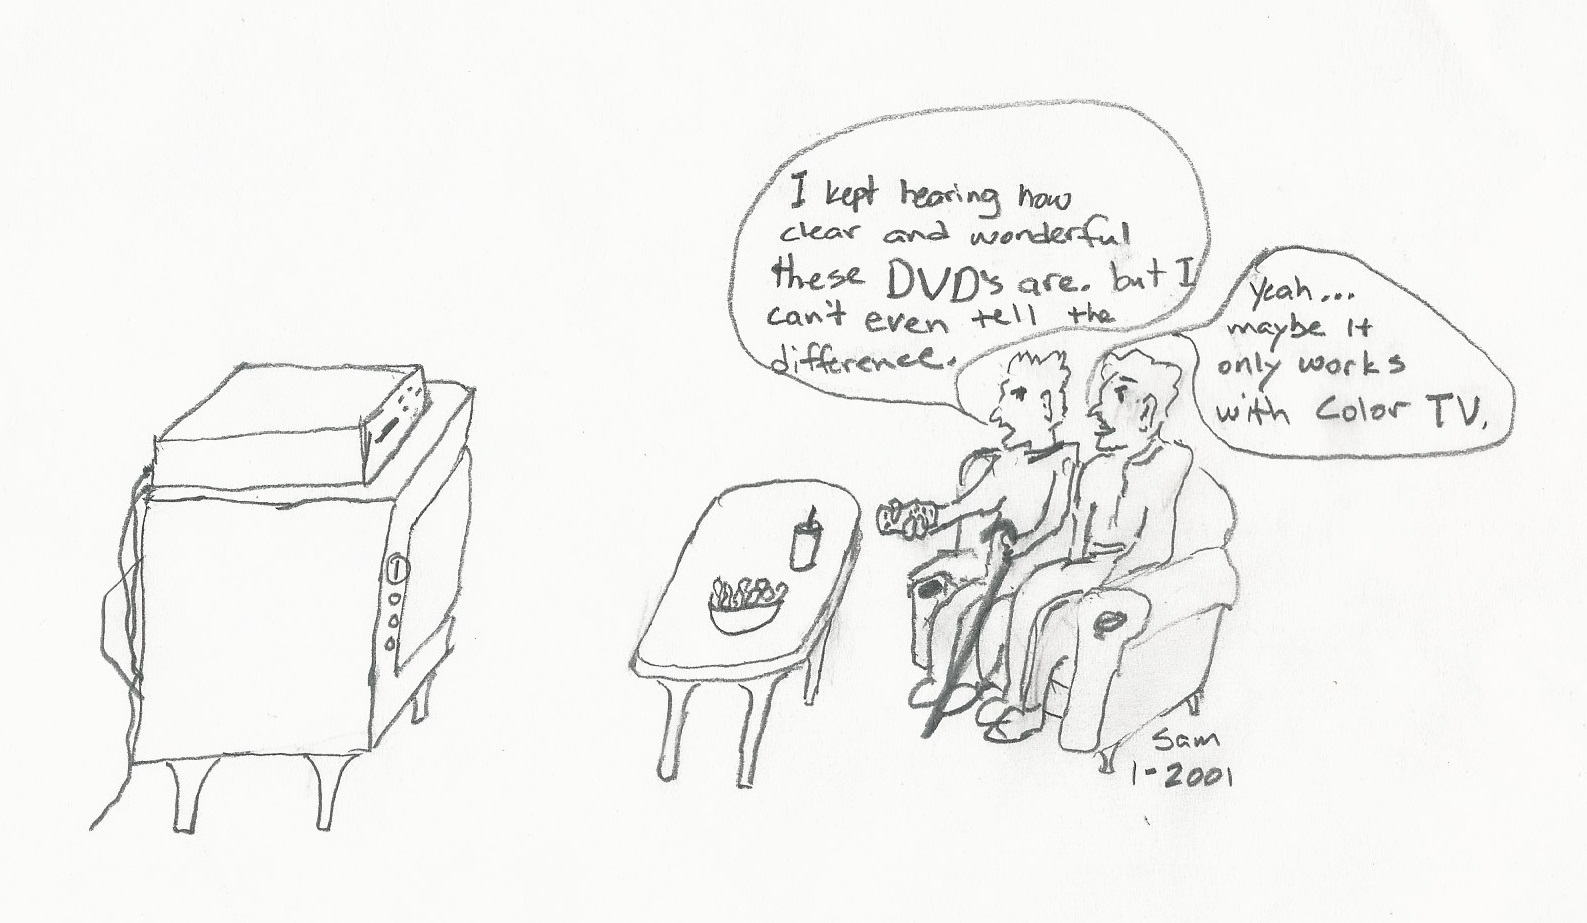 I kept hearing how
clear and wonderful
these DVD's are. but I
can't even tell the
difference.
yeah...
maybe it
only works
with Color TV.
Sam
1-2001